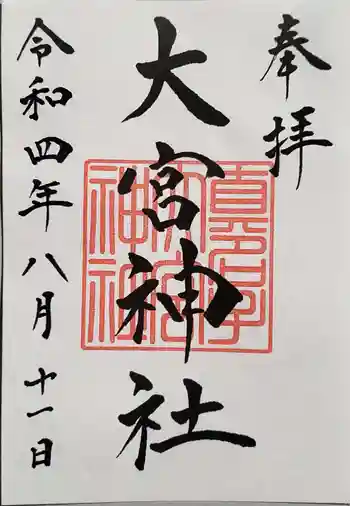 奉拝
大宮神社
令和四年八月十一日